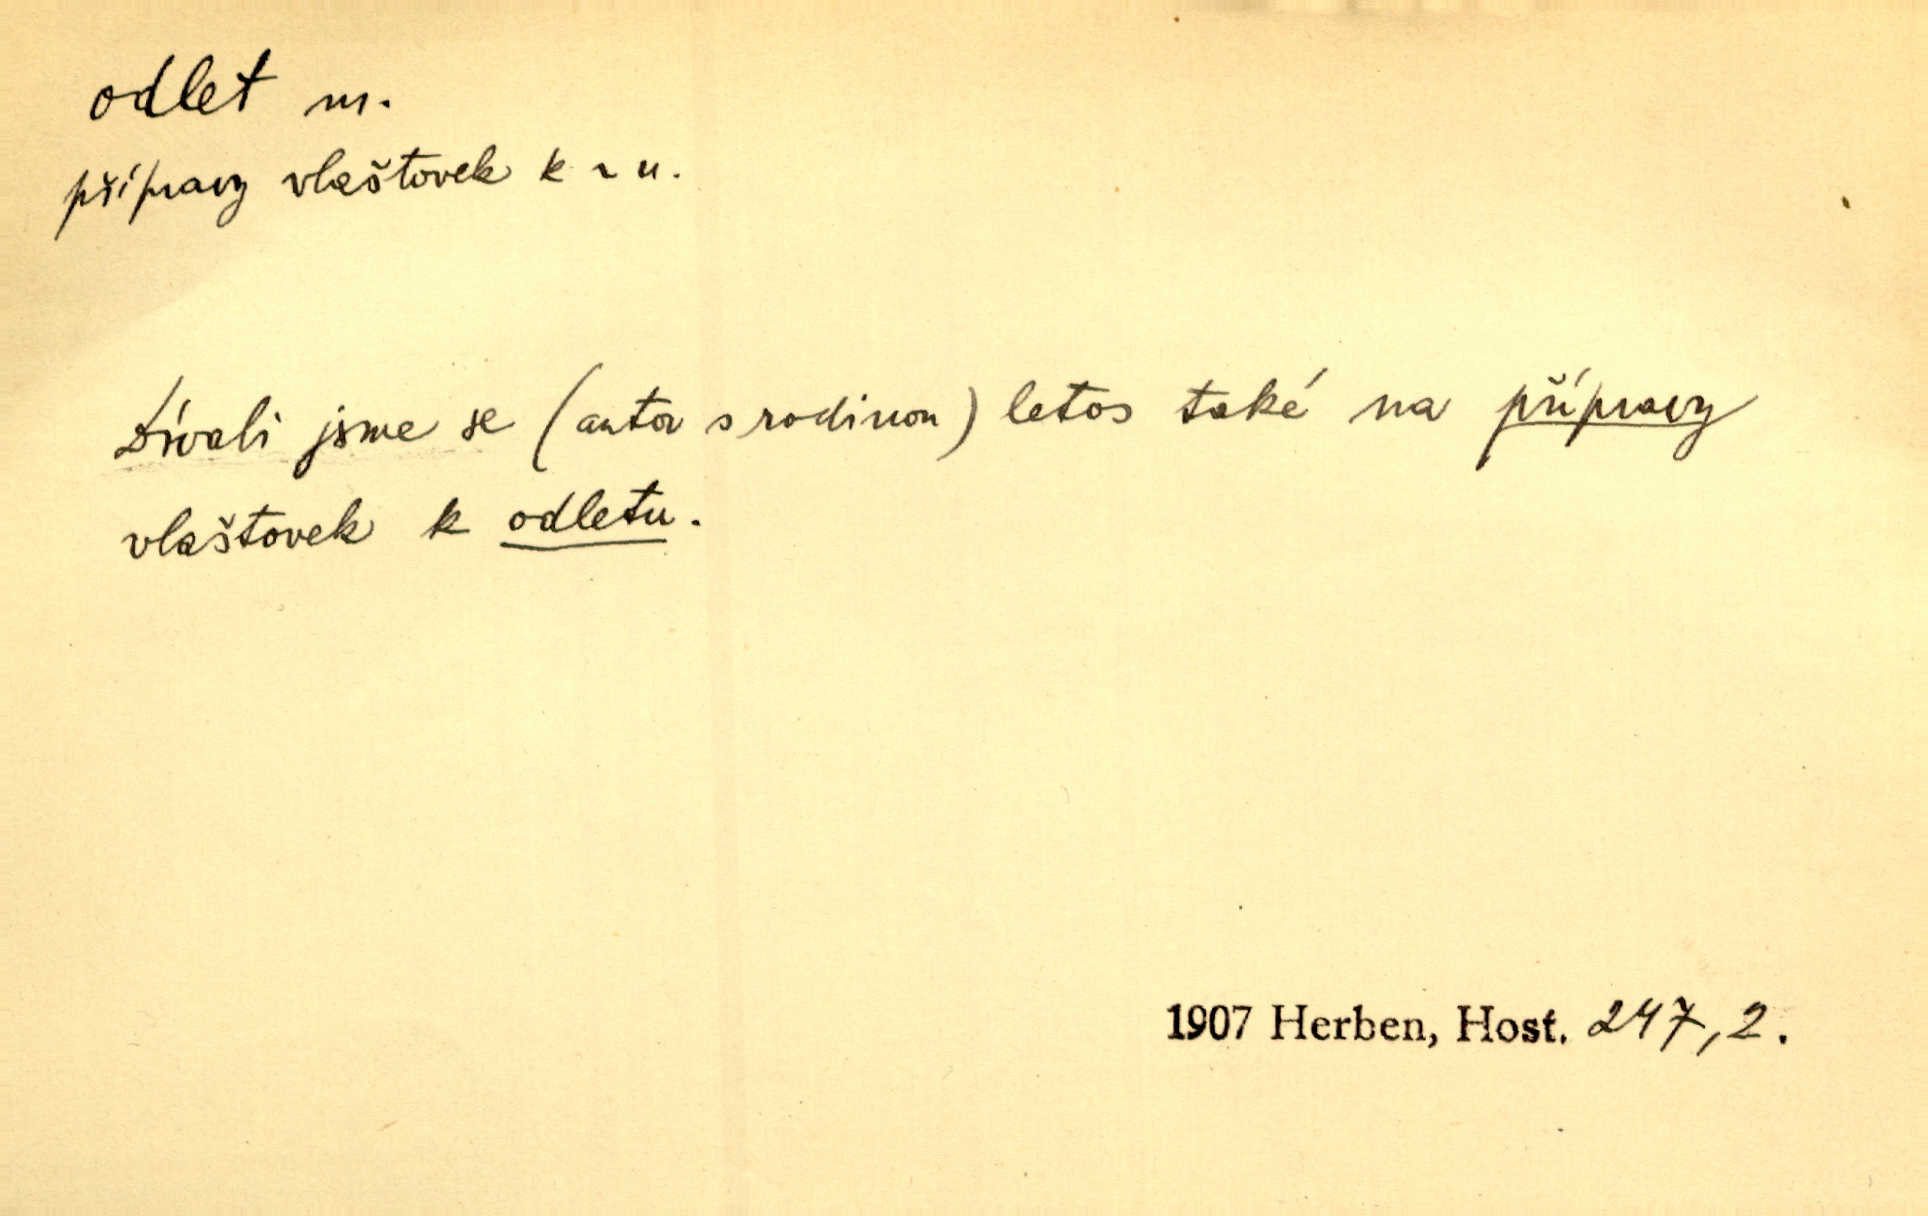 odlet m.
přípravy vlaštovek k ~ u.
Dívali jsme se (autor s rodinou) letos také na přípravy
vlaštovek k odletu.
1907 Herben, Host. 247,2.